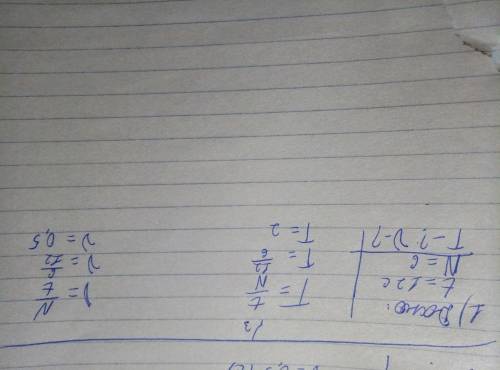 1) Дано:
t = 12 c
N = 6
T - ?; ν - ?
T = t/N
T = 12/6
T = 2
ν = N/t
ν = 6/12
ν = 0,5